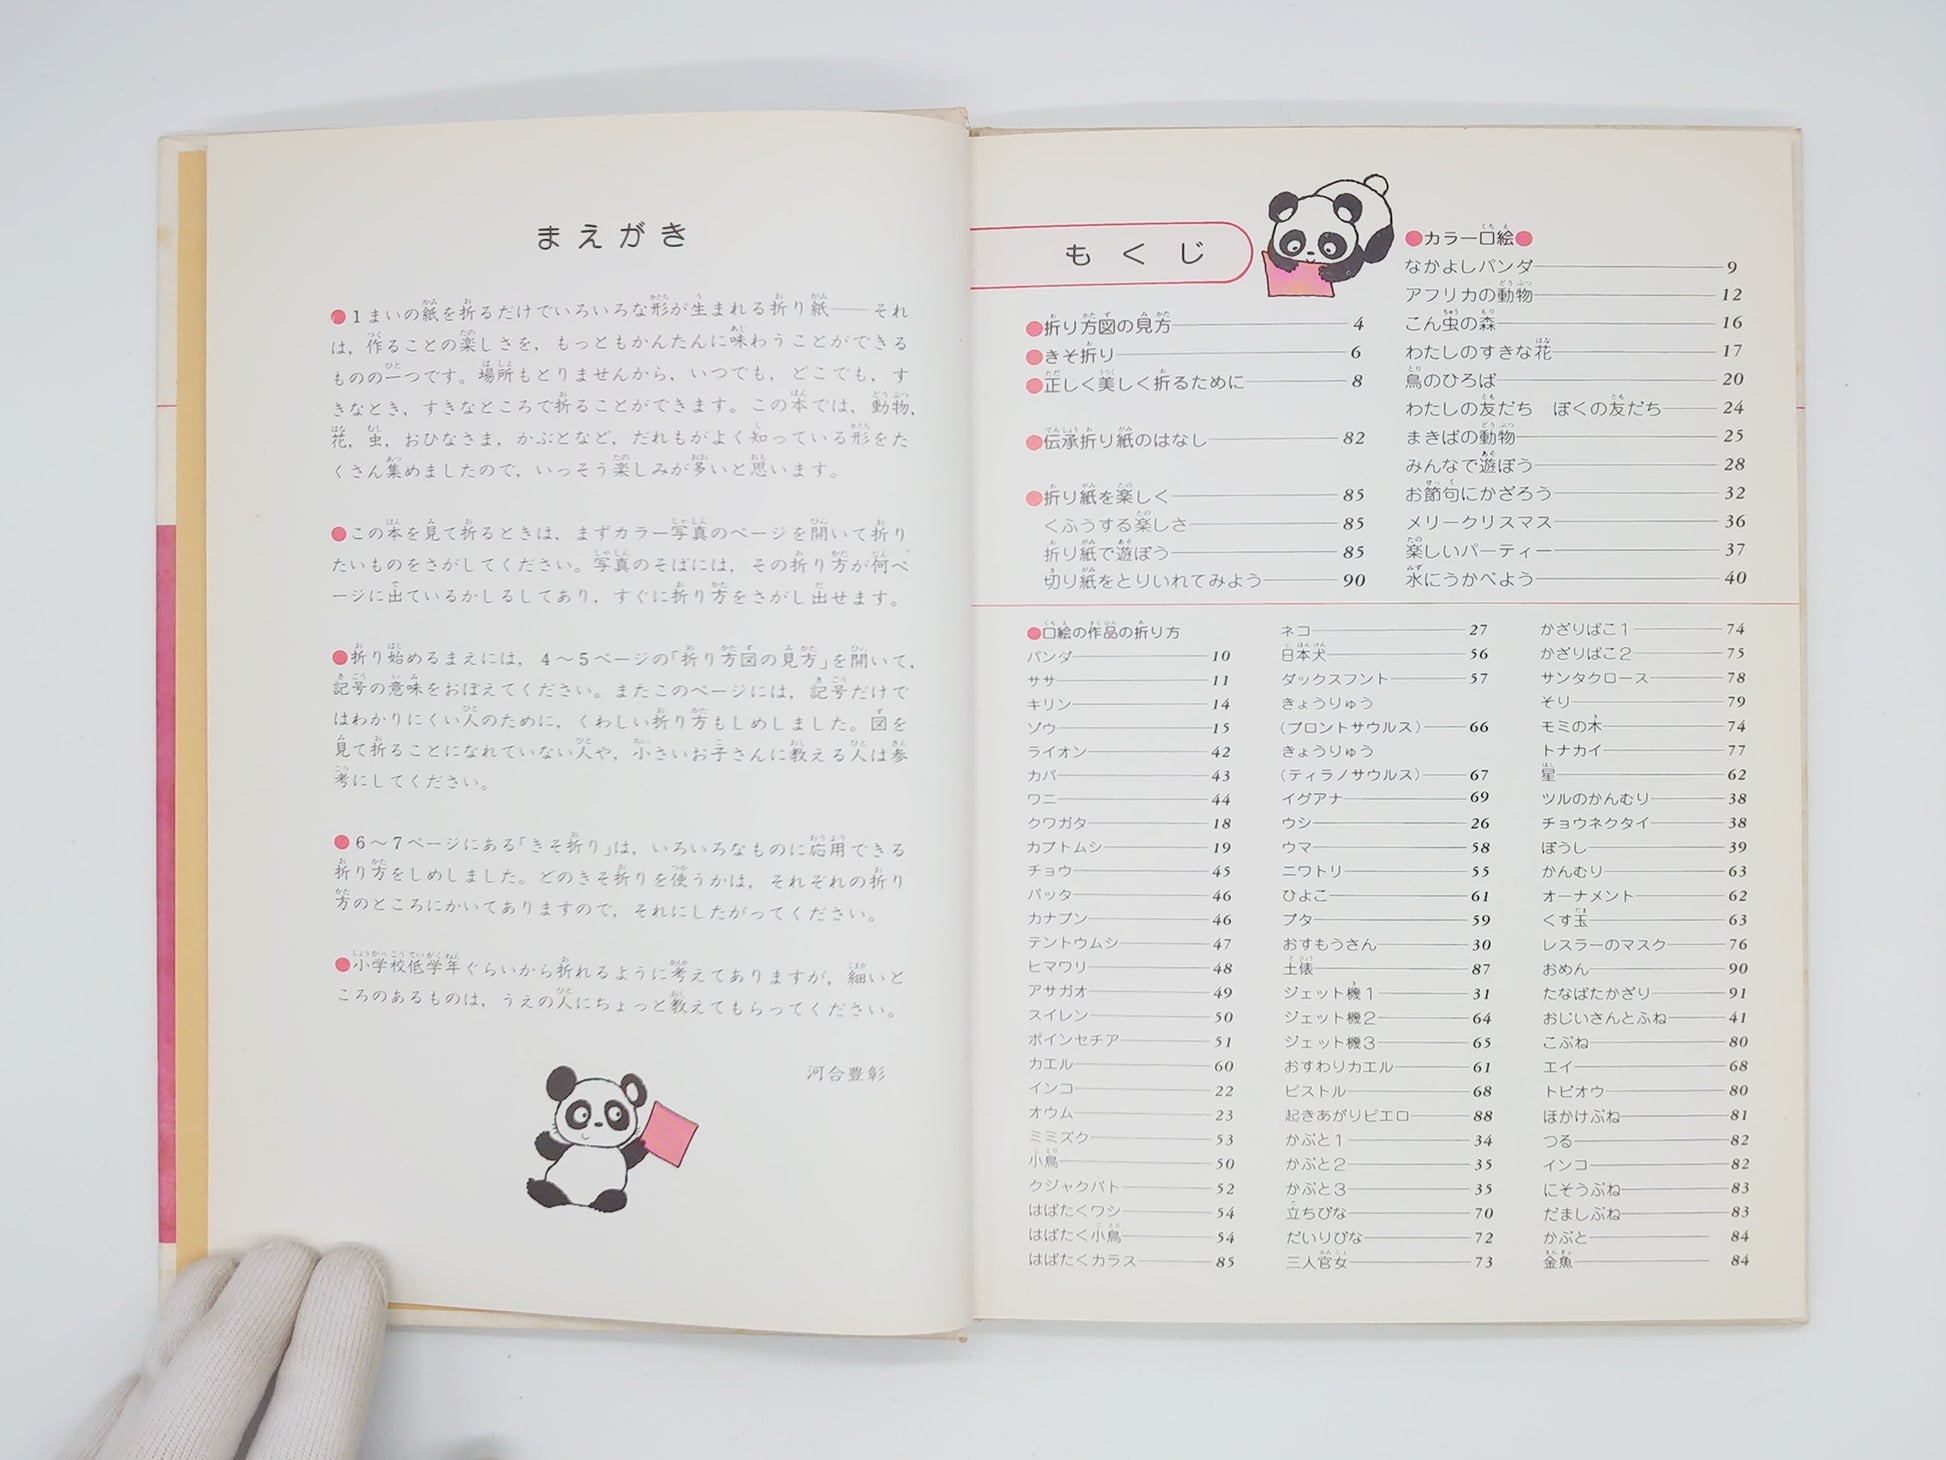 まえがき
●1まいの紙を折るだけでいろいろな形が生まれる折り紙――それ
は，作ることの楽しさを，もっともかんたんに味わうことができる
ものの一つです。場所もとりませんから，いつでも，どこでも，す
きなとき，すきなところで折ることができます。この本では，動物，
花，虫，おひなさま，かぶとなど，だれもがよく知っている形をた
くさん集めましたので，いっそう楽しみが多いと思います。
●この本を見て折るときは，まずカラー写真のページを開いて折り
たいものをさがしてください。写真のそばには，その折り方が何ペ
ージに出ているかしるしてあり，すぐに折り方をさがし出せます。
●折り始めるまえには，4～5ページの「折り方図の見方」を開いて，
記号の意味をおぼえてください。またこのページには，記号だけで
はわかりにくい人のために，くわしい折り方もしめしました。図を
見て折ることになれていない人や，小さいお子さんに教える人は参
考にしてください。
●6～7ページにある「きそ折り」は，いろいろなものに応用できる
折り方をしめしました。どのきそ折りを使うかは，それぞれの折り
方のところにかいてありますので，それにしたがってください。
●小学校低学年ぐらいから折れるように考えてありますが，細いと
ころのあるものは，うえの人にちょっと教えてもらってください。
河合豊彰
もくじ
●折り方図の見方 4
●きそ折り 6
●正しく美しく折るために 8
●伝承折り紙のはなし 82
●折り紙を楽しく 85
くふうする楽しさ 85
折り紙で遊ぼう 85
切り紙をとりいれてみよう 90
●カラー口絵●
なかよしパンダ 9
アフリカの動物 12
こん虫の森 16
わたしのすきな花 17
鳥のひろば 20
わたしの友だち　ぼくの友だち 24
まきばの動物 25
みんなで遊ぼう 28
お節句にかざろう 32
メリークリスマス 36
楽しいパーティー 37
水にうかべよう 40
●口絵の作品の折り方
パンダ 10
ササ 11
キリン 14
ゾウ 15
ライオン 42
カバ 43
ワニ 44
クワガタ 18
カブトムシ 19
チョウ 45
バッタ 46
カナブン 46
テントウムシ 47
ヒマワリ 48
アサガオ 49
スイレン 50
ポインセチア 51
カエル 60
インコ 22
オウム 23
ミミズク 53
小鳥 50
クジャクバト 52
はばたくワシ 54
はばたく小鳥 54
はばたくカラス 85
ネコ 27
日本犬 56
ダックスフント 57
きょうりゅう
(ブロントサウルス) 66
きょうりゅう
(ティラノサウルス) 67
イグアナ 69
ウシ 26
ウマ 58
ニワトリ 55
ひよこ 61
ブタ 59
おすもうさん 30
土俵 87
ジェット機1 31
ジェット機2 64
ジェット機3 65
おすわりカエル 61
ピストル 68
起きあがりピエロ 88
かぶと1 34
かぶと2 35
かぶと3 35
立ちびな 70
だいりびな 72
三人官女 73
かざりばこ1 74
かざりばこ2 75
サンタクロース 78
そり 79
モミの木 74
トナカイ 77
星 62
ツルのかんむり 38
チョウネクタイ 38
ぼうし 39
かんむり 63
オーナメント 62
くす玉 63
レスラーのマスク 76
おめん 90
たなばたかざり 91
おじいさんとふね 41
こぶね 80
エイ 68
トビオウ 80
ほかけぶね 81
つる 82
インコ 82
にそうぶね 83
だましぶね 83
かぶと 84
金魚 84